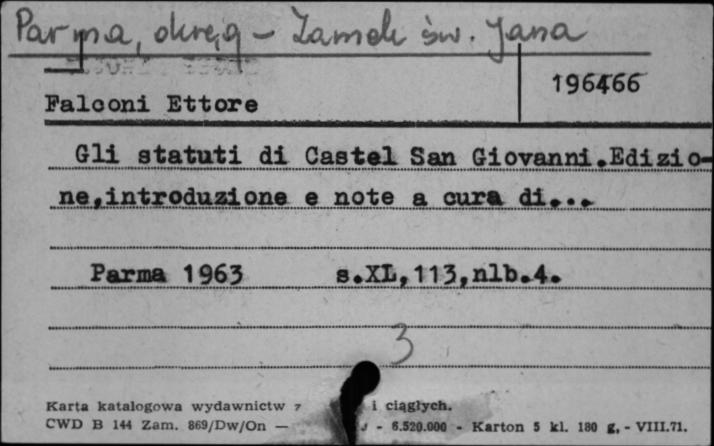 Parma, okręg - Zamek św. Jana
196466
Falconi Ettore
Gli statuti di Castel San Giovanni.Edizio-
ne,introduzione e note a cura di...
Parma 1963 s.XL,113,nlb.4.
3
Karta katalogowa wydawnictw z i ciągłych.
CWD B 144 Zam. 869/Dw/On — - 6.520.000 - Karton 5 kl. 180 g, - VIII.71.